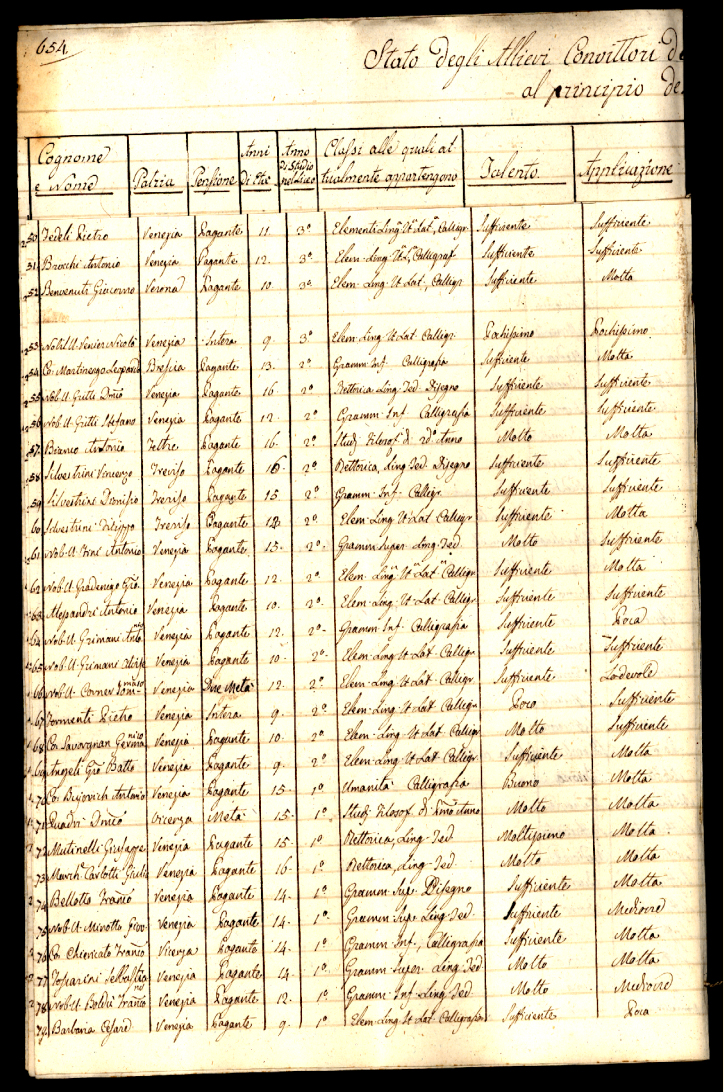 654.
Stato degli Allievi Convittori de
al principio de
Cognome e Nome Patria Pensione Anni di Età Anno di Studio nel Liceo Classi alle quali attualmente appartengono Talento Applicazione
50 Fedeli Pietro Venezia Pagante 11. 3º Elementi Ling.ª It.ª Lat.ª, Calligr. Sufficiente Sufficiente
51 Brocchi Antonio Venezia Pagante 12. 3º Elem. Ling. It.ª L.ª, Calligraf. Sufficiente Sufficiente
52 Benvenuti Giacomo Verona Pagante 10. 3º Elem. Ling. It. Lat., Calligr. Sufficiente Molta
53 Nobil U. Venier Nicolò Venezia Intera 9. 3º Elem. Ling. It. Lat. Calligr. Pochissimo Pochissimo
54 Co. Martinengo Leopardo Brescia Pagante 13. 2º Gramm. Inf. Calligrafia Sufficiente Molta
55 Nob. U. Gritti Dom.co Venezia Pagante 16 2º Rettorica Ling. Ted. Disegno Sufficiente Sufficiente
56 Nob. U. Gritti Stefano Venezia Pagante 12. 2º Gramm. Inf. Calligrafia Sufficiente Sufficiente
57 Bianco Antonio Feltre Pagante 16. 2º Studj Filosof. di 2do Anno Molto Molta
58 Silvestrini Vincenzo Treviso Pagante 16. 2º Rettorica, Ling. Ted. Disegno Sufficiente Sufficiente
59 Silvestrini Dionisio Treviso Pagante 15 2º Gramm. Inf. Calligr. Sufficiente Sufficiente
60 Silvestrini Filippo Treviso Pagante 12. 2º Elem. Ling. It. Lat. Calligr. Sufficiente Molta
61 Nob. U. Antonio Venezia Pagante 15. 2º Gramm. Super. Ling. Ted. Molto Sufficiente
62 Nob. U. Gradenigo Gio. Venezia Pagante 12. 2º Elem. Ling.ª It.ª Lat.ª Calligr. Sufficiente Molta
63 Alessandri Antonio Venezia Pagante 10. 2º Elem. Ling. It. Lat. Calligr. Sufficiente Sufficiente
64 Nob. U. Grimani Anto.nio Venezia Pagante 12. 2º Gramm. Inf. Calligrafia Sufficiente Poca
65 Nob. U. Grimani Venezia Pagante 10. 2º Elem. Ling. It. Lat. Calligr. Sufficiente Sufficiente
66 Nob. U. Corner Tommaso Venezia Due Metà 12. 2º Elem. Ling. It. Lat. Calligr. Sufficiente Lodevole
67 Pietro Venezia Intera 9. 2º Elem. Ling. It. Lat. Calligr. Poco Sufficiente
68 Co. Savorgnan Germanico Venezia Pagante 10. 2º Elem. Ling. It. Lat. Calligr. Molto Sufficiente
69 Angeli Gio. Batta Venezia Pagante 9. 2º Elem. Ling. It. Lat. Calligr. Sufficiente Molta
70 Co. Bujovich Antonio Venezia Pagante 15. 1º Umanità Calligrafia Buono Molta
71 Quadri Dom.co Vicenza Metà 15. 1º Studj Filosof. di Primo Anno Molto Molta
72 Mutinelli Giuseppe Venezia Pagante 15. 1º Rettorica, Ling. Ted. Moltissimo Molta
73 March. Carlotti Giulio Venezia Pagante 16. 1º Rettorica, Ling. Ted. Molto Molta
74 Bellotto Franco Venezia Pagante 14. 1º Gramm. Supe. Disegno Sufficiente Molta
75 Nob. U. Minotto Giov. Venezia Pagante 14. 1º Gramm. Supe. Ling. Ted. Sufficiente Mediocre
76 Co. Chiericato Franco Vicenza Pagante 14. 1º Gramm. Inf., Calligrafia Sufficiente Molta
77 Sebastiano Venezia Pagante 14. 1º Gramm. Super. Ling. Ted. Molto Molta
78 Nob. U. Boldù Franco Venezia Pagante 12. 1º Gramm. Inf. Ling. Ted. Molto Mediocre
79 Barbaria Cesare Venezia Pagante 9. 1º Elem. Ling. It. Lat. Calligrafia Sufficiente Poca